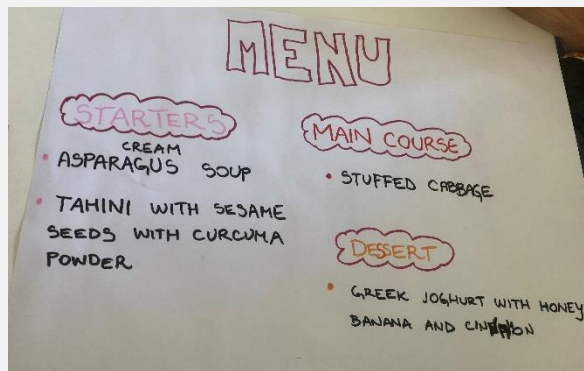 MENU
STARTERS
CREAM
ASPARAGUS SOUP
TAHINI WITH SESAME
SEEDS WITH CURCUMA
POWDER
MAIN COURSE
STUFFED CABBAGE
DESSERT
GREEK JOGHURT WITH HONEY
BANANA AND